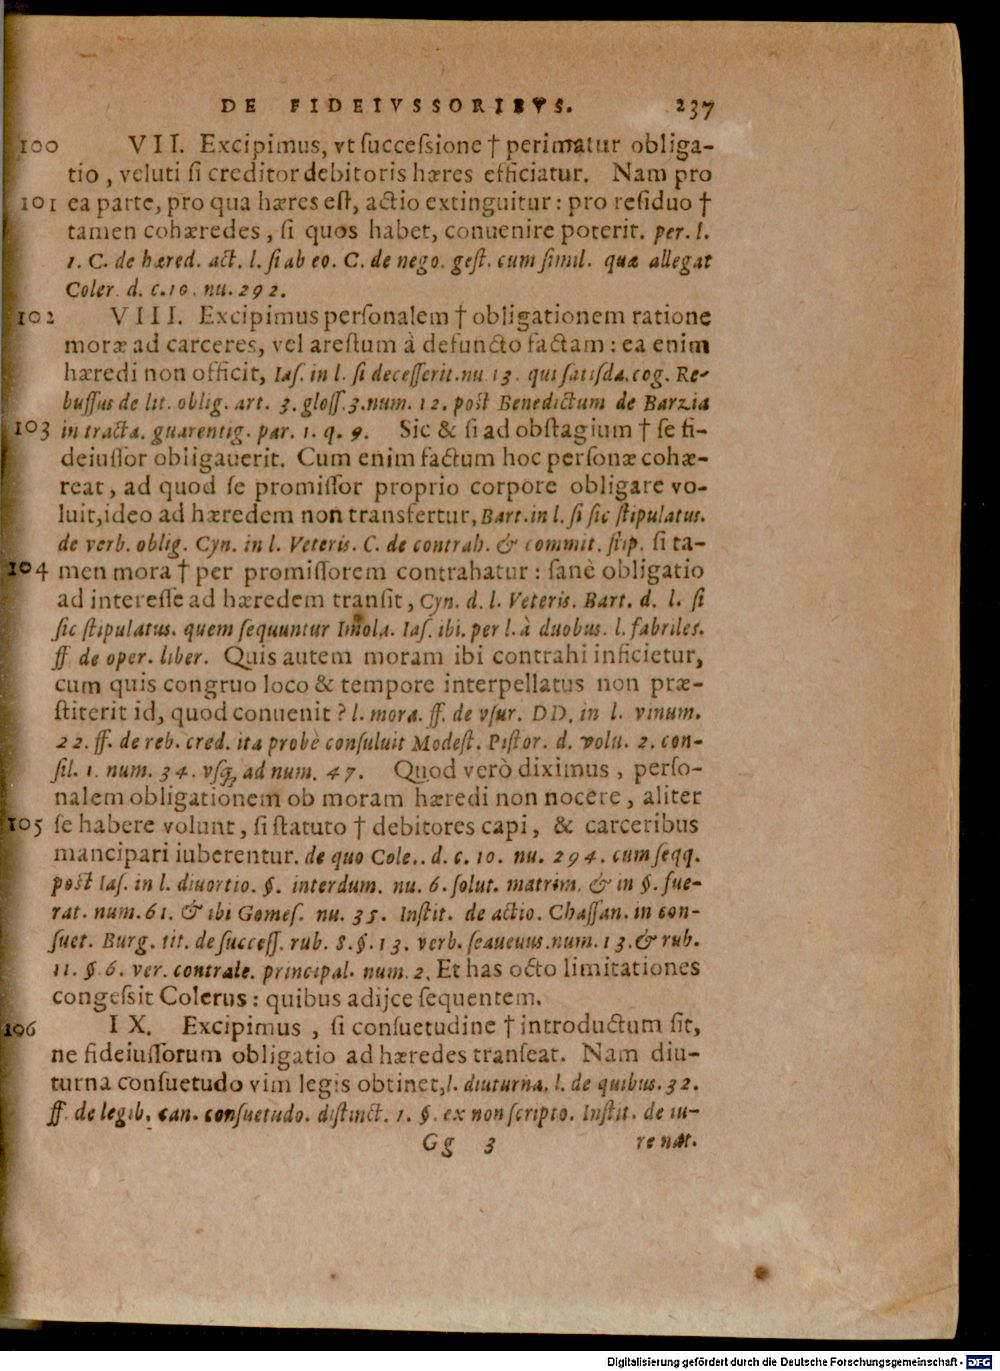 DE FIDEIVSSORIBVS. 237
100 VII. Excipimus, vt ſucceſsione † perimatur obliga-
tio, veluti ſi creditor debitoris hæres efficiatur. Nam pro
101 ea parte, pro qua hæres eſt, actio extinguitur: pro reſiduo †
tamen cohæredes, ſi quos habet, conuenire poterit. per. l.
1. C. de hæred. act. l. ſi ab eo. C. de nego. geſt. cum ſimil. quæ allegat
Coler. d. c. 10. nu. 292.
102 VIII. Excipimus perſonalem † obligationem ratione
moræ ad carceres, vel areſtum à defuncto factam: ea enim
hæredi non officit, Iaſ. in l. ſi deceſſerit. nu 13. qui ſatiſda. cog. Re-
buffus de lit. oblig. art. 3. gloſſ. 3. num. 12. poſt Benedictum de Barzia
103 in tracta. guarentig. par. 1. q. 9. Sic & ſi ad obſtagium † ſe fi-
deiuſſor obligauerit. Cum enim factum hoc perſonæ cohæ-
reat, ad quod ſe promiſſor proprio corpore obligare vo-
luit, ideo ad hæredem non transfertur, Bart. in l. ſi ſic ſtipulatus.
de verb. oblig. Cyn. in l. Veteris. C. de contrah. & commit. ſtip. ſi ta-
104 men mora † per promiſſorem contrahatur: ſanè obligatio
ad intereſſe ad hæredem tranſit, Cyn. d. l. Veteris. Bart. d. l. ſi
ſic ſtipulatus. quem ſequuntur Imola. Iaſ. ibi. per l. à duobus. l. fabriles.
ff de oper. liber. Quis autem moram ibi contrahi inficietur,
cum quis congruo loco & tempore interpellatus non præ-
ſtiterit id, quod conuenit? l. mora. ff. de vſur. DD. in l. vinum.
22. ff. de reb. cred. ita probè conſuluit Modeſt. Piſtor. d. volu. 2. con-
ſil. 1. num. 34. vſq; ad num. 47. Quod verò diximus, perſo-
nalem obligationem ob moram hæredi non nocere, aliter
105 ſe habere volunt, ſi ſtatuto † debitores capi, & carceribus
mancipari iuberentur. de quo Cole.. d. c. 10. nu. 294. cum ſeqq.
poſt Iaſ. in l. diuortio. §. interdum. nu. 6. ſolut. matrim. & in §. fue-
rat. num. 61. & ibi Gomeſ. nu. 35. Inſtit. de actio. Chaſſan. in con-
ſuet. Burg. tit. de ſucceſſ. rub. 8. §. 13. verb. ſeaueuus. num. 13. & rub.
11. §. 6. ver. contrale. principal. num. 2. Et has octo limitationes
congeſsit Colerus: quibus adijce ſequentem.
106 IX. Excipimus, ſi conſuetudine † introductum ſit,
ne fideiuſſorum obligatio ad hæredes tranſeat. Nam diu-
turna conſuetudo vim legis obtinet, l. diuturna. l. de quibus. 32.
ff. de legib. can. conſuetudo. diſtinct. 1. §. ex non ſcripto. Inſtit. de iu-
Gg 3 re nat.
Digitalisierung gefördert durch die Deutsche Forschungsgemeinschaft - DFG